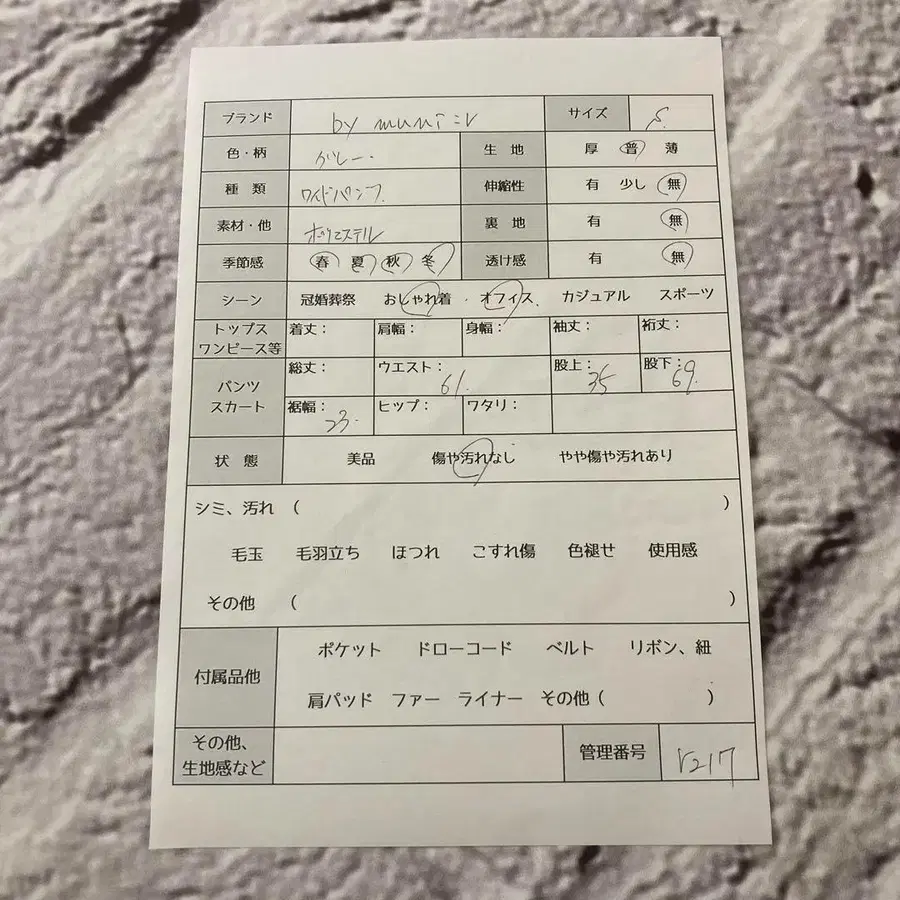 ブランド by muni:r サイズ S.
色・柄 グレー. 生 地 厚 普 薄
種 類 ワイドパンツ. 伸縮性 有 少し 無
素材・他 ポリエステル 裏 地 有 無
季節感 春 夏 秋 冬 透け感 有 無
シーン 冠婚葬祭 おしゃれ着 ・ オフィス、 カジュアル スポーツ
トップス
ワンピース等 着丈: 肩幅: 身幅: 袖丈: 裄丈:
パンツ
スカート 総丈: ウエスト: 61. 股上: 35 股下: 69.
裾幅: 23. ヒップ: ワタリ:
状 態 美品 傷や汚れなし やや傷や汚れあり
シミ、汚れ ( )
毛玉 毛羽立ち ほつれ こすれ傷 色褪せ 使用感
その他 ( )
付属品他 ポケット ドローコード ベルト リボン、紐
肩パッド ファー ライナー その他 ( )
その他、
生地感など 管理番号 r217